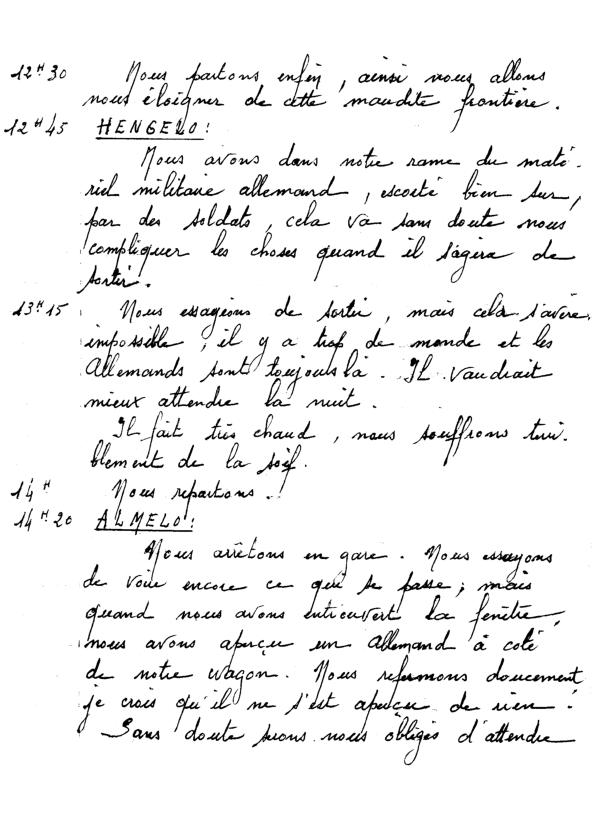 12H30 Nous partons enfin, ainsi nous allons
nous éloigner de cette maudite frontière.
12H45 HENGELO:
Nous avons dans notre rame du maté-
riel militaire allemand, escorté bien sur,
par des soldats, cela va sans doute nous
compliquer les choses quand il s'agira de
sortir.
13H15 Nous essayons de sortir, mais celà s'avère
impossible, il y a trop de monde et les
Allemands sont toujours là. Il vaudrait
mieux attendre la nuit.
Il fait très chaud, nous souffrons terri-
blement de la soif.
14H Nous repartons.
14H20 ALMELO:
Nous arrêtons en gare. Nous essayons
de voir encore ce qui se passe; mais
quand nous avons entr'ouvert la fenêtre,
nous avons aperçu un Allemand à coté
de notre wagon. Nous refermons doucement
je crois qu'il ne s'est aperçu de rien.
Sans doute serons nous obligés d'attendre